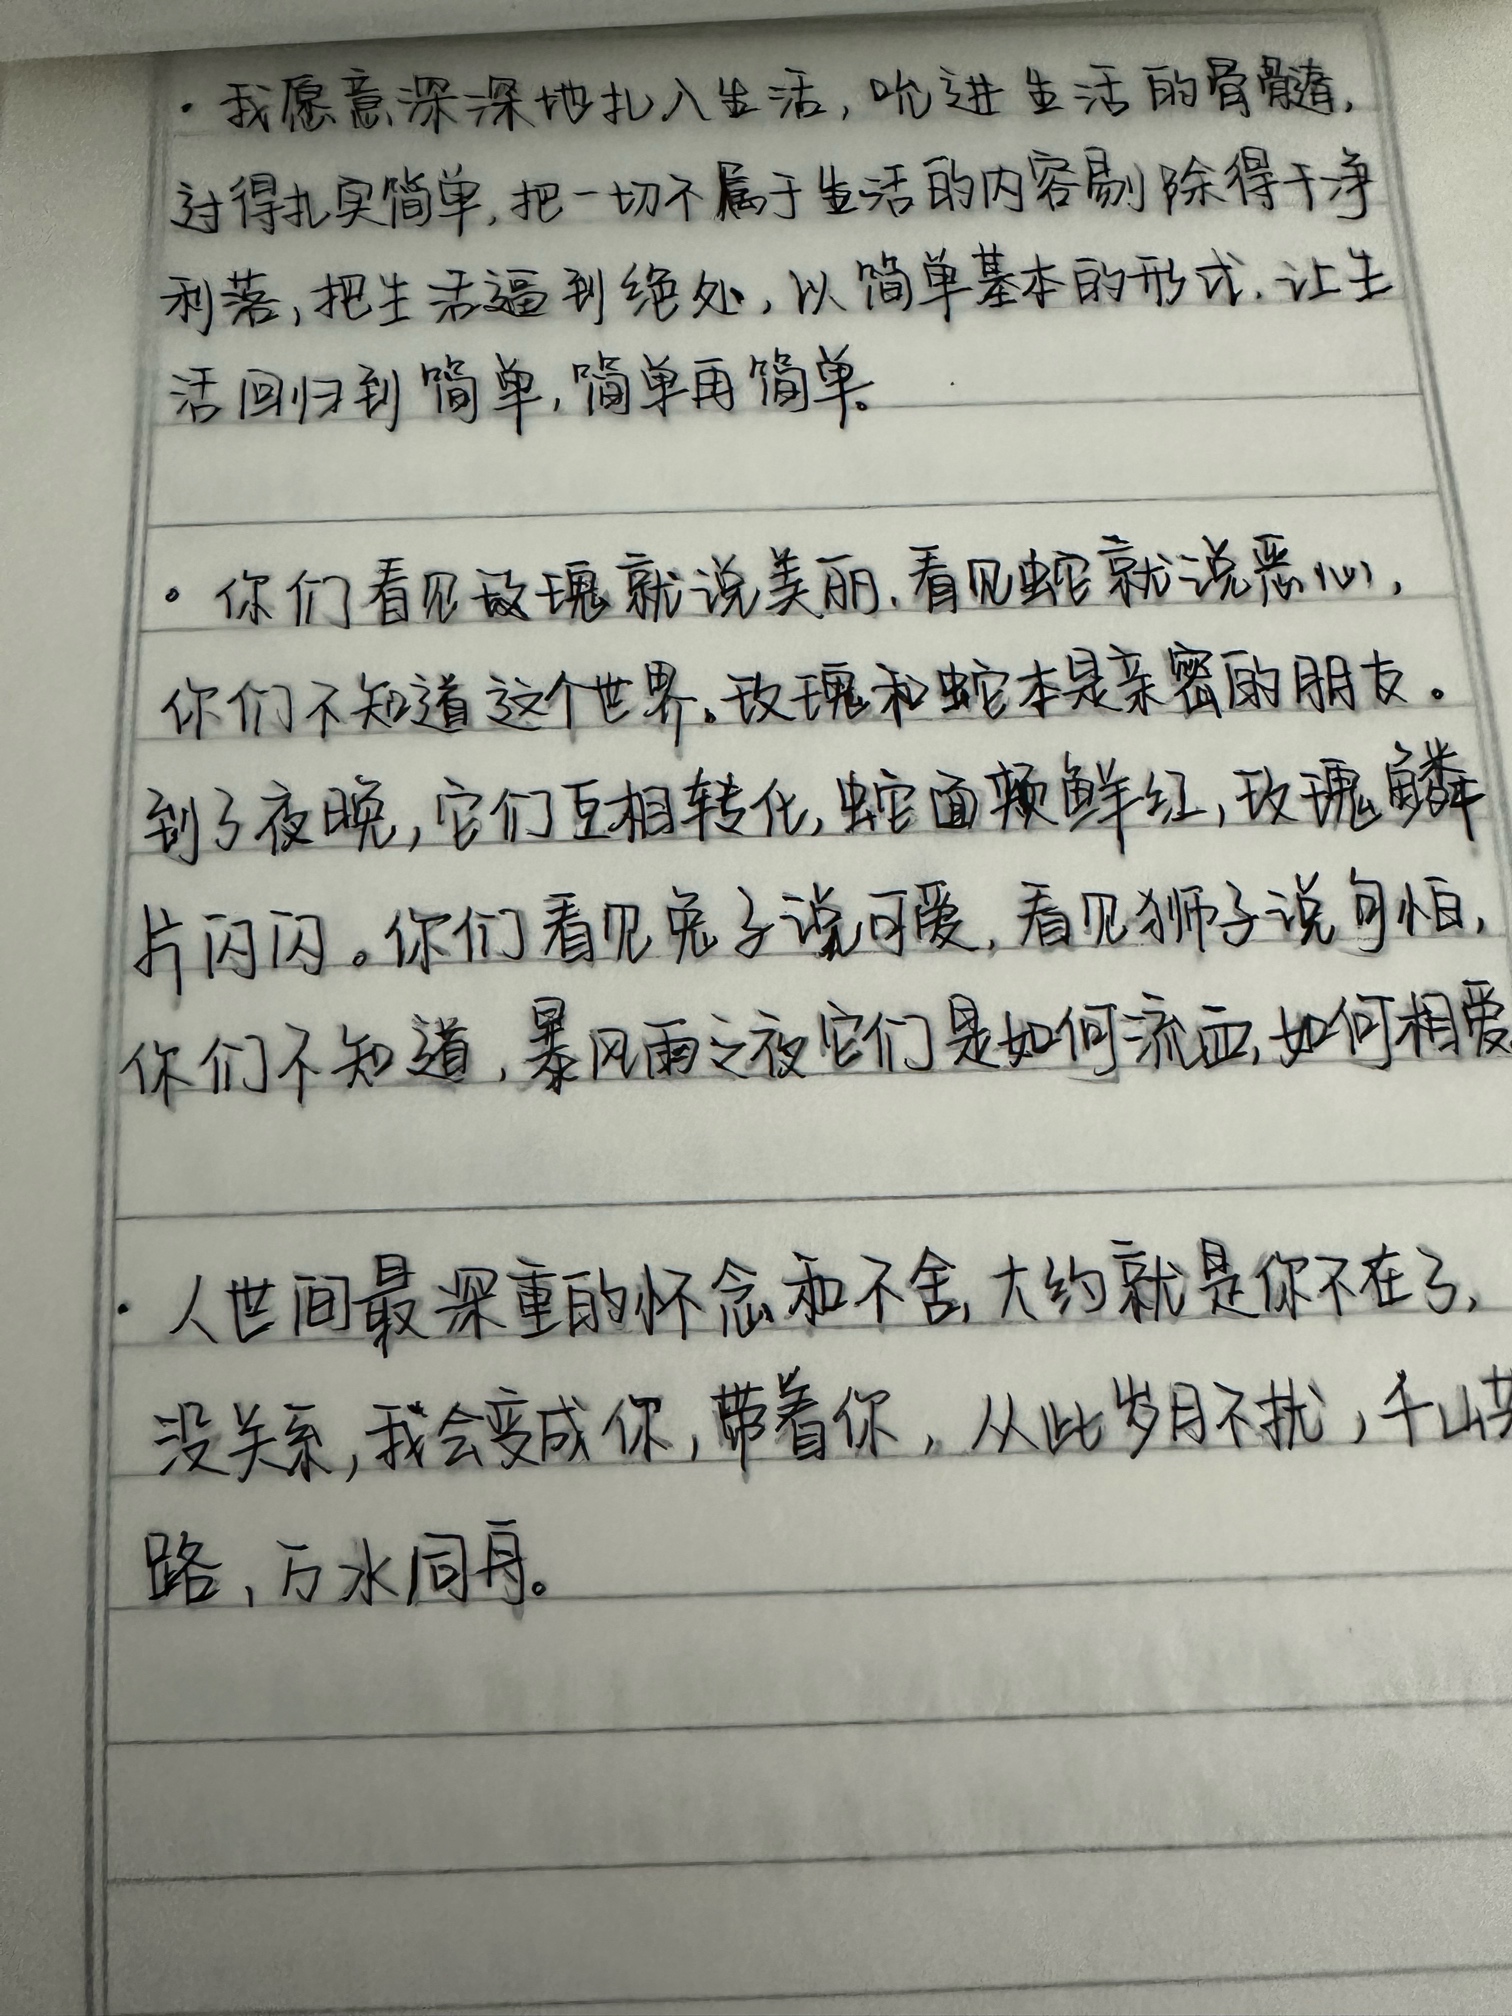 · 我愿意深深地扎入生活，吮进生活的骨髓，
过得扎实简单，把一切不属于生活的内容剔除得干净
利落，把生活逼到绝处，以简单基本的形式，让生
活回归到简单，简单再简单。
· 你们看见玫瑰就说美丽，看见蛇就说恶心，
你们不知道这个世界。玫瑰和蛇本是亲密的朋友。
到了夜晚，它们互相转化，蛇面颊鲜红，玫瑰鳞
片闪闪。你们看见兔子说可爱，看见狮子说可怕，
你们不知道，暴风雨之夜它们是如何流血，如何相爱
· 人世间最深重的怀念和不舍，大约就是你不在了，
没关系，我会变成你，带着你，从此岁月不扰，千山
路，万水同舟。